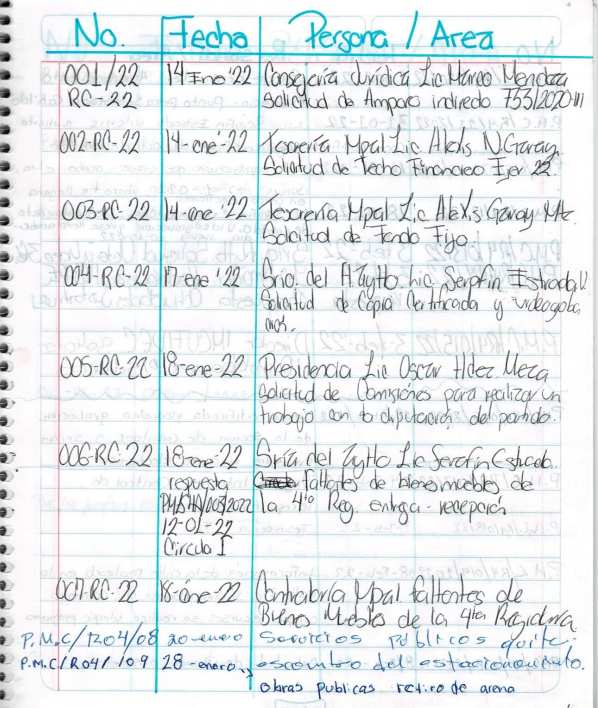 No. Fecha Persona / Area
001/22 14 Eno '22 Consejería Jurídica Lic Marco Mendoza
RC-22 Solicitud de Amparo indiredo 753/2020-III
002-RC-22 14-ene'-22 Tesorería Mpal Lic Alexis N. Garay
Solicitud de Techo Financieo Ejer 22.
003-RC-22 14-ene '22 Tesorería Mpal. Lic Alexis Garay Mtz.
Solicitud de Fondo Fijo.
004-RC-22 17-ene '22 Srio. del H. Aytto. Lic. Serafin Estrada
Solicitud de Copia Certificada y videograba
ciones.
005-RC-22 18-ene-22 Presidencia Lic Oscar Hdez Meza
Solicitud de Comisiones para realizar un
trabajo con la diputación del partido.
006-RC-22 18-ene-22 Sría. del Aytto Lic Serafin Estrada.
respuesta faltantes de bienes muebles de
2022 la 4ta Reg. entrega - recepción
12-01-22
Circula I
007-RC-22 18-ene-22 Contraloría Mpal faltantes de
Bienes Muebles de la 4ta Regiduría.
P.M.C/R04/08 20-enero Servicios Públicos quite.
P.M.C/R04/109 28-enero, escombro del estacionamiento.
obras publicas retiro de arena